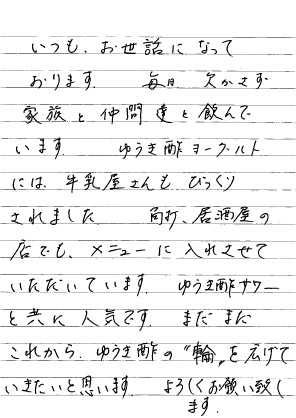 いつも、お世話になって
おります。 毎日 欠かさず
家族と仲間達と飲んで
います。 ゆうき酢ヨーグルト
には、牛乳屋さんも びっくり
されました 、居酒屋の
店でも、メニューに入れさせて
いただいています。 ゆうき酢サワー
と共に人気です。 まだまだ
これから、ゆうき酢の〝輪〟を広げて
いきたいと思います。 よろしくお願い致し
ます。